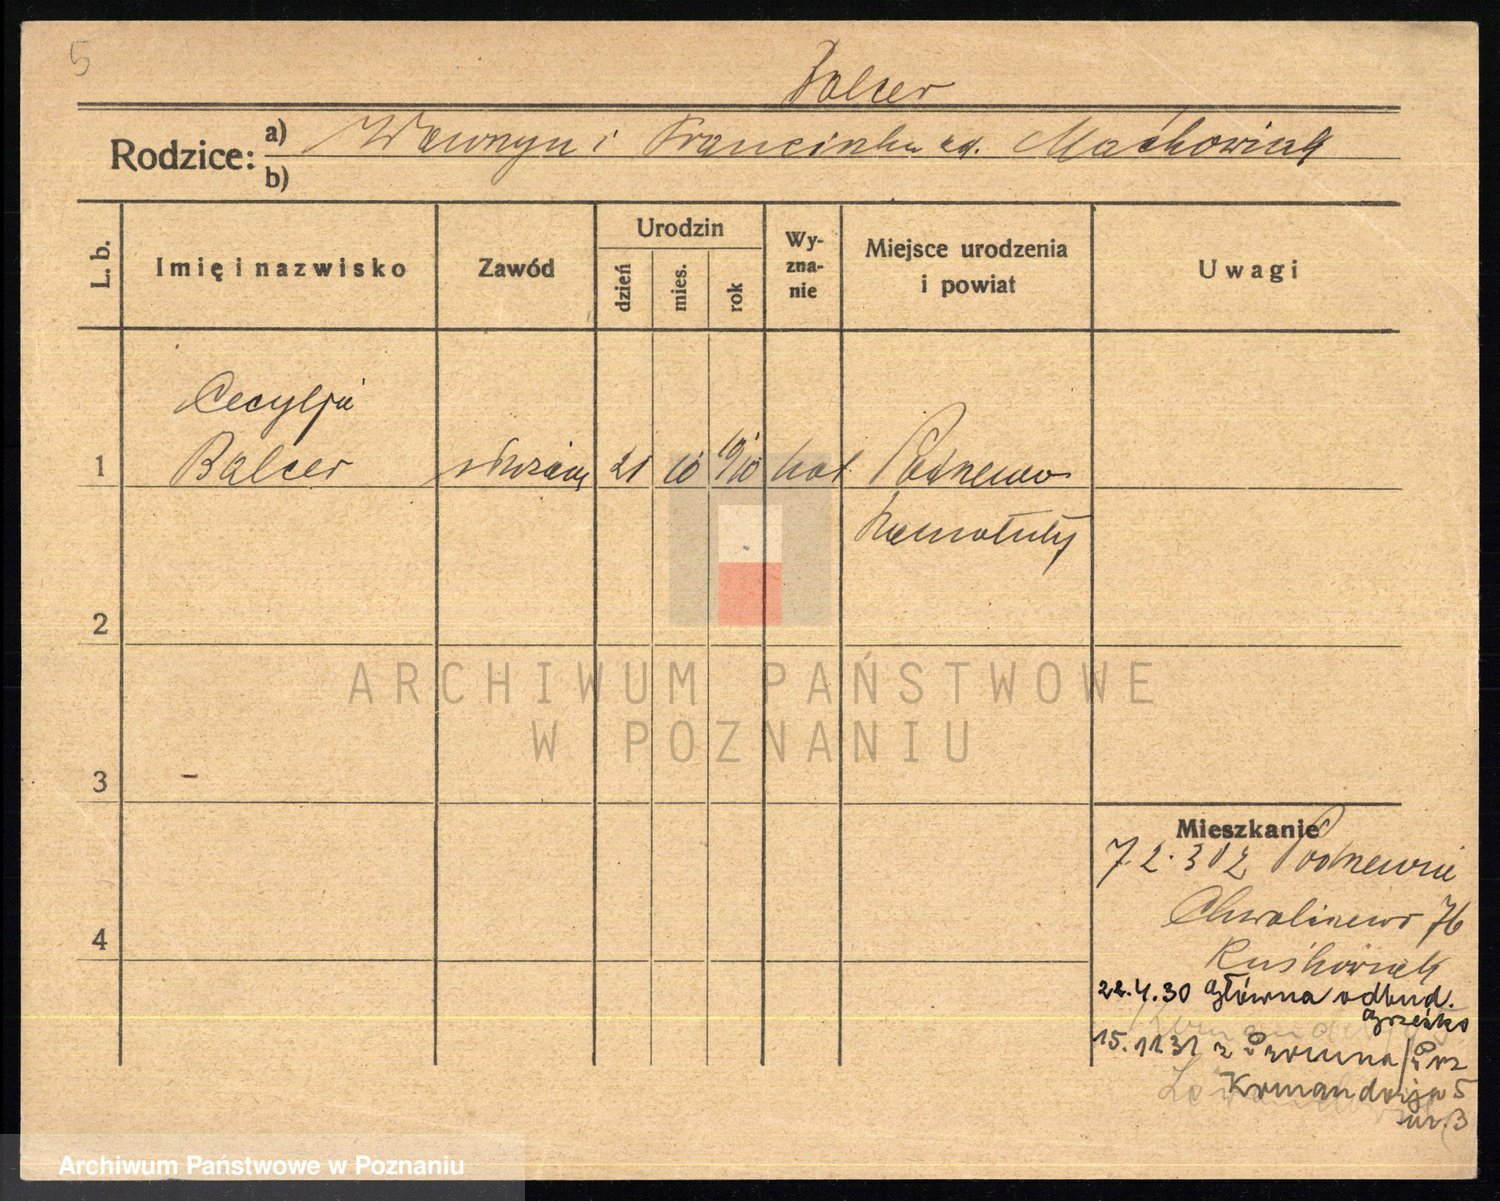 5
Balcer
Rodzice: a) Wawrzyn i Franciszka zd. Maćkowiak
b)
L. b. Imię i nazwisko Zawód Urodzin dzień mies. rok Wy-zna-nie Miejsce urodzenia i powiat Uwagi
Cecylja
1 Balcer służąca 21 10 1910 kat Podrzewo
Szamotuły
2
ARCHIWUM PAŃSTWOWE
W POZNANIU
3
Mieszkanie
7.2.30 z Podrzewia
4 Chwaliszewo 76
22.4.30 Główna odbud.
15.11.31 z
Komandorja 5
Archiwum Państwowe w Poznaniu